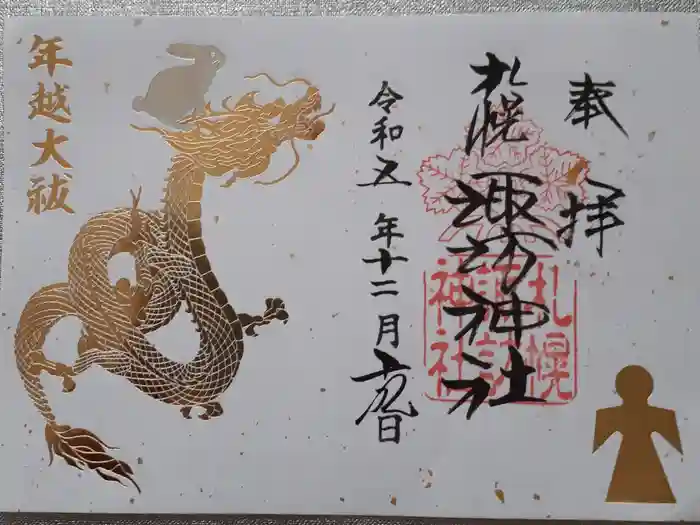 奉拝
札幌諏訪神社
札幌
諏訪
神社
令和五年十二月十九日
年越大祓